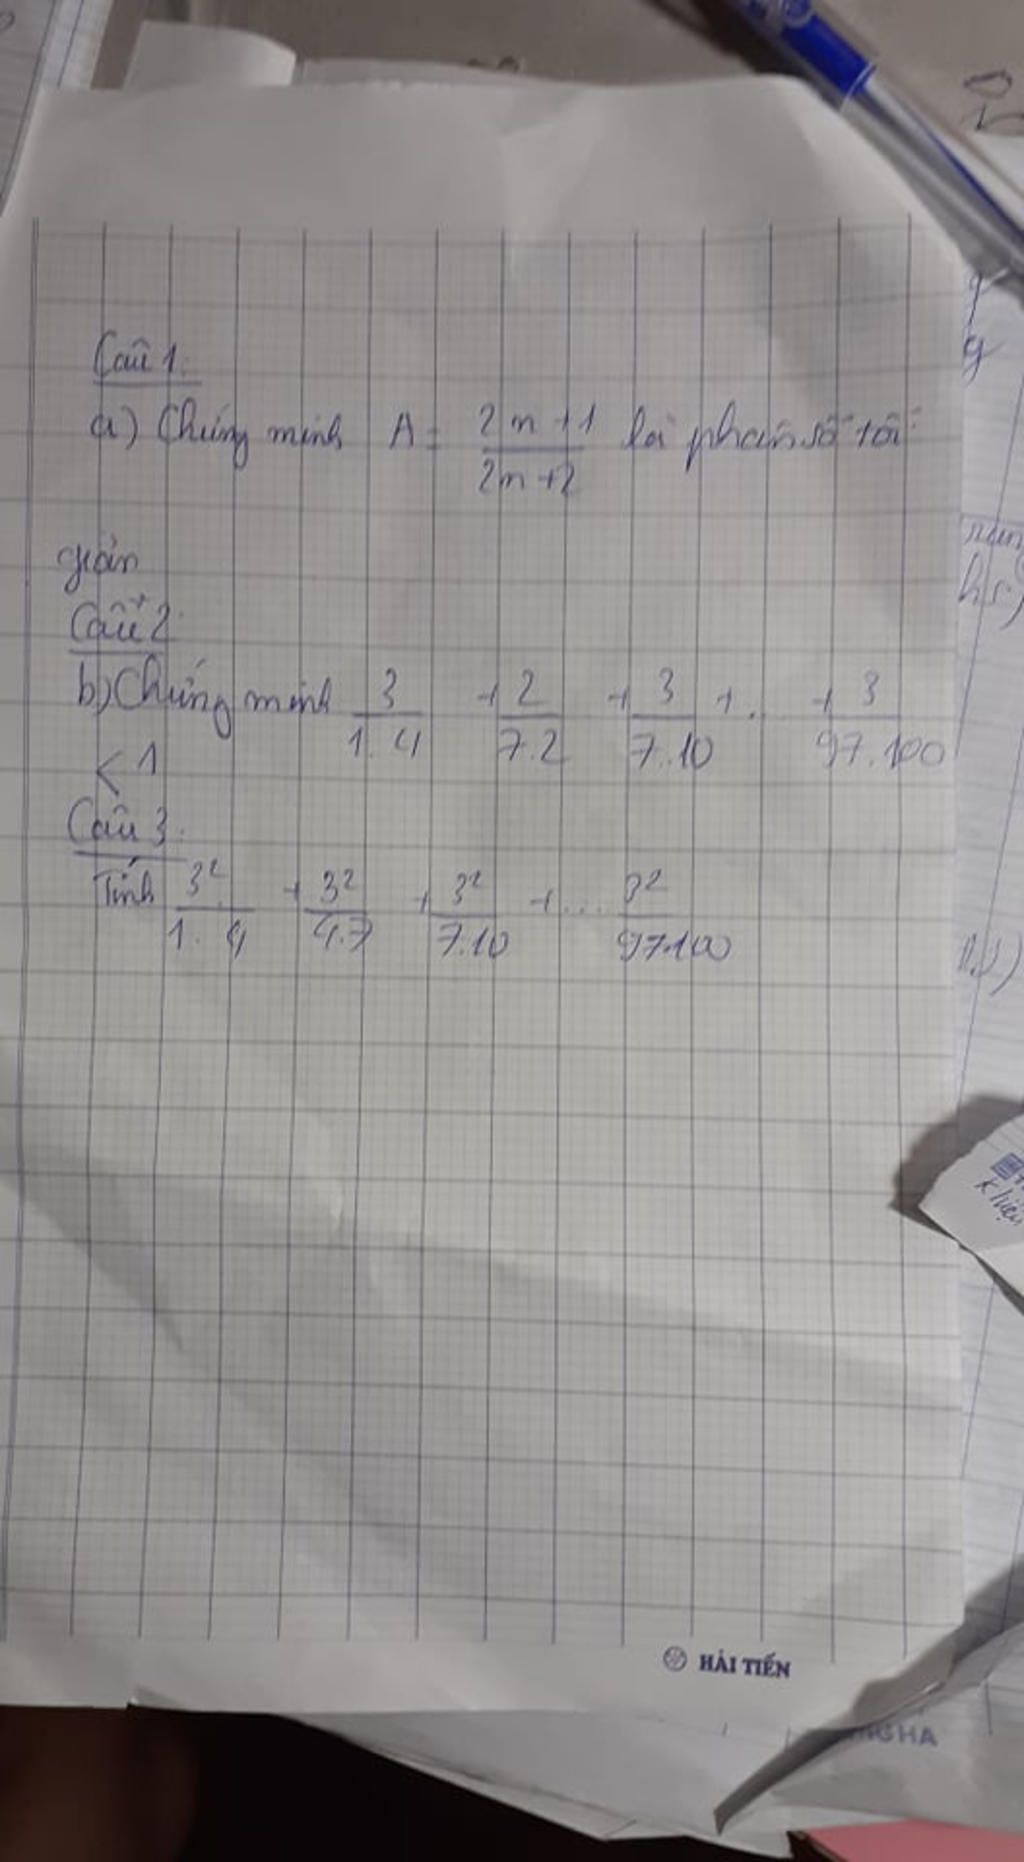 Câu 1:
a) Chứng minh A = \frac{2n+1}{2n+2} là phân số tối
giản
Câu 2:
b) Chứng minh \frac{3}{1.4} + \frac{2}{7.2} + \frac{3}{7.10} + . + \frac{3}{97.100}
< 1
Câu 3:
Tính \frac{3²}{1.4} + \frac{3²}{4.7} + \frac{3²}{7.10} + .... \frac{3²}{97.100}
HẢI TIẾN